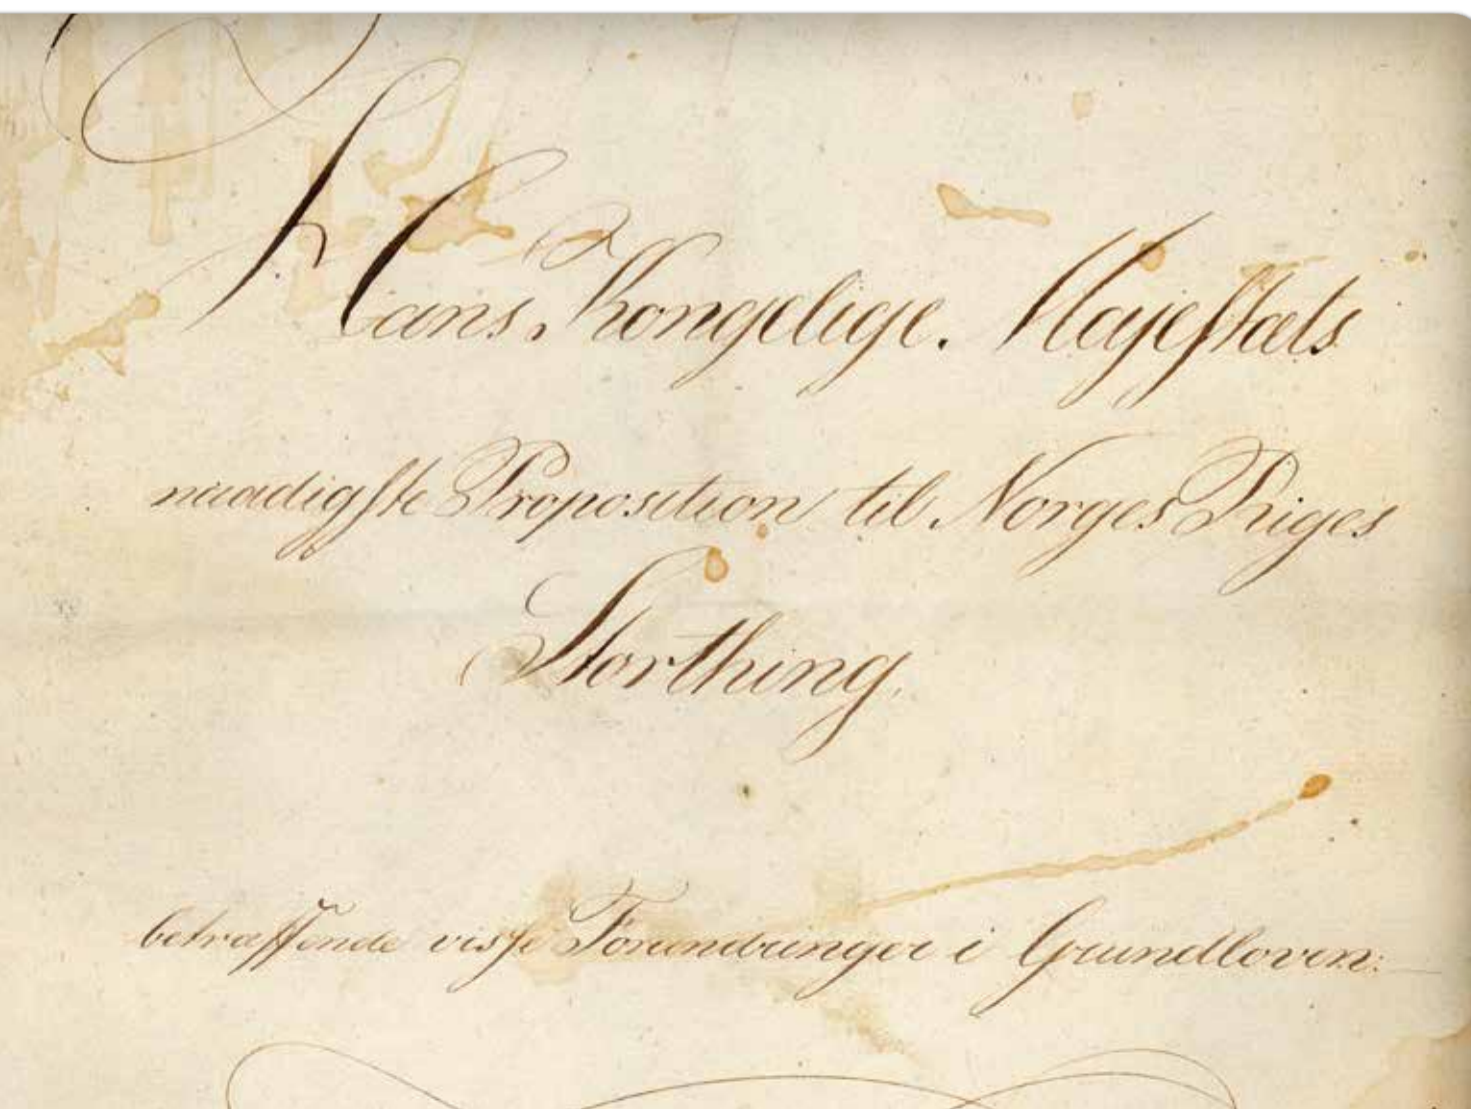 Hans Kongelige Majestæts
naadigste Proposition til Norges Riges
Storthing,
betræffende visse Forandringer i Grundloven.